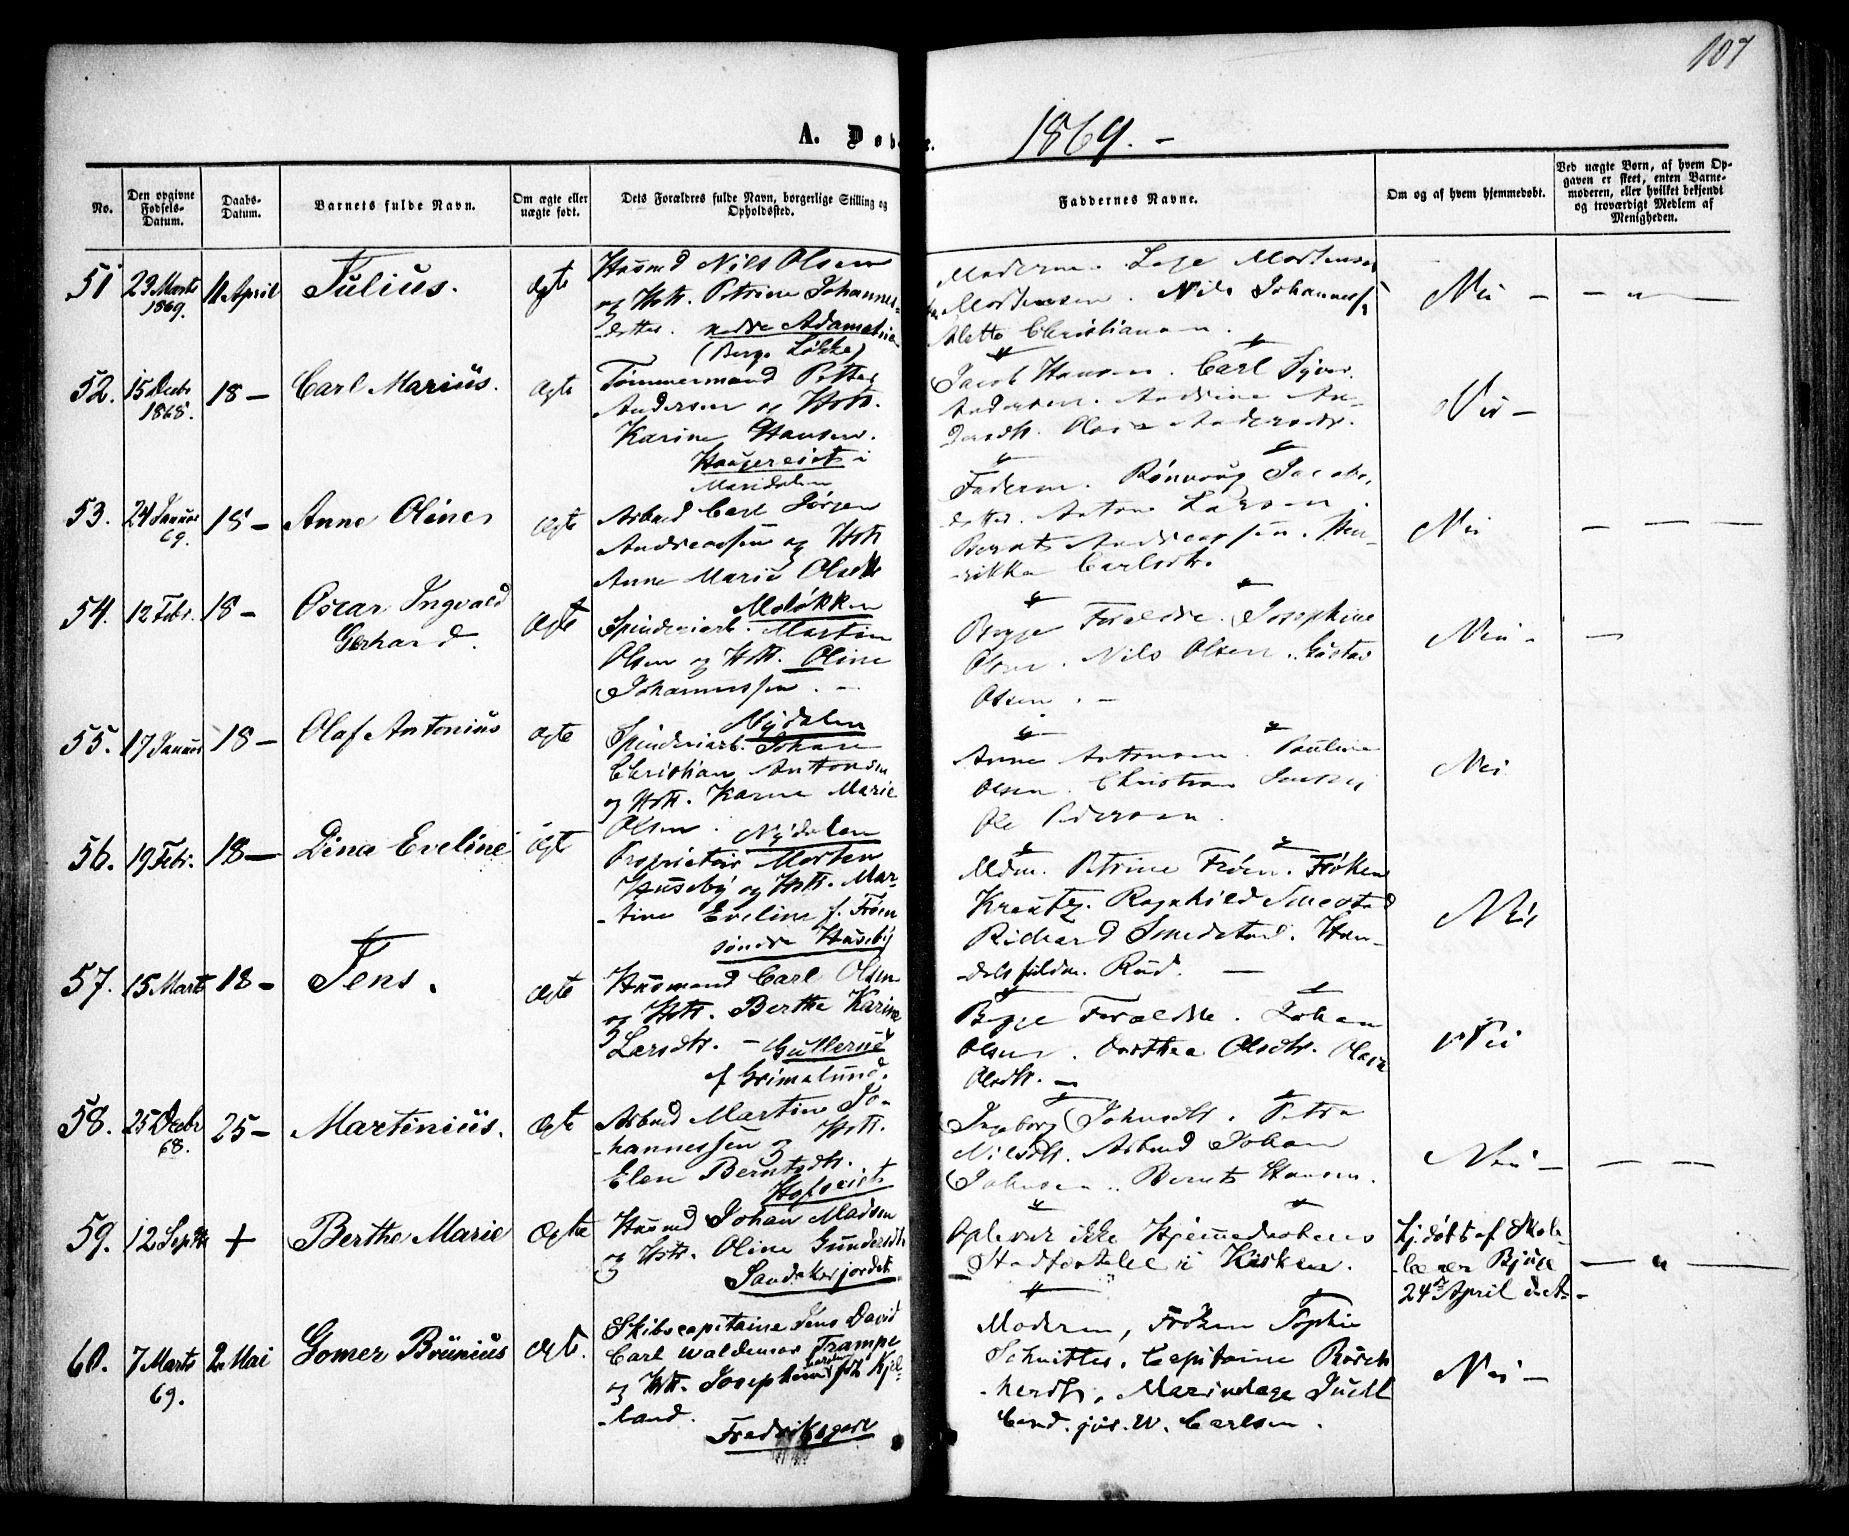 107
A. Døbte. 1869. –
No.
Den opgivne Fødsels-Datum.
Daabs-Datum.
Barnets fulde Navn.
Om ægte eller uægte født.
Dets Forældres fulde Navn, borgerlige Stilling og Opholdssted.
Faddernes Navne.
Om og af hvem hjemmedøbt.
Ved uægte Børn, af hvem Opgaven er skeet, enten Barnemoderen, eller hvilket bekjendt og troværdigt Medlem af Menigheden.
51 23 Marts 1869. 11 April Julius. Ægte
Husmd Nils Olsen
og Hstr. Petrine Johannes-
-dotter. nedre Adamstuen
(Bergs Løkke)
Moderen. Mortensen
Mortensen. Nils Johanness.
Alette Christiansen.
Nei – – " –
52. 15 Decbr 1868. 18 – Carl Marius. Ægte
Tømmermand Petter
Andersen og Hstr.
Karine Hansen.
Haugereiet i
Maridalen
Jacob Hansen. Carl Syver.
Andersen. Andrine An-
dersdtr. Andersdr.
Nei –
53. 24 Januar 69. 18 – Anne Oline Ægte
Arbmd Carl Jørgen
Andreassen og Hstr
Anne Marie Olsdtr
Møløkken
Faderen. Rønnaug Jacobs-
dotter. Anton Larsen.
Bernt Andreassen. Hen-
-rikke Carlsdtr.
Nei – – –
54. 12 Febr. 18 – Oscar Ingvald Gerhard. Ægte
Spinderiarb. Martin
Olsen og Hstr. Oline
Johannessen. –
Nydalen
Begge Forældre. Josephine
Olsen. Nils Olsen. Gustav
Olsen. –
Nei – –
55. 17 Januar 18 – Olaf Antonius Ægte
Spinderiarb. Johan
Christian Antonsen
og Hstr. Karen Marie
Olsen. Nydalen
Anne Antonsen. Pauline
Olsen. Christian
Ole Pedersen.
Nei
56. 19 Febr. 18 – Dina Eveline Ægte
Proprietair Morten
Huseby og Hstr. Mar-
-tine Eveline f. Frøen
søndre Huseby
Mdm. Petrine Frøen. Frøken
Kreutz. Ragnhild Smestad
Richard Smedstad. Han-
-delsfuldm. Rud. –
Nei
57. 15 Marts 18 – Jens. Ægte
Husmand Carl Olsen
og Hstr. Berthe Karine
Larsdtr. – Gullerud
f Grimelund.
Begge Forældre. Johan
Olsen. Dorthea Olsdtr.
Olsdtr. –
Nei
58. 25 Decbr 68. 25 – Martinius. Ægte
Arbmd Martin Jo-
-hannessen og Hstr.
Elen Berntsdtr.
Ingeborg Johnsdtr. Petra
Nilsdtr. Arbmd Johan
Johnsen. Bernt Hansen.
Nei – – –
59. 12 Septbr + Berthe Marie Ægte
Husmd Johan Madsen
og Hstr. Oline Gundersdtr
Sandakerjordet.
Oplever ikke Hjemmedaabens
Stadfæstelse i Kirken.
Hj. døbt af
Bjuge
24de April
– " –
60. 7 Marts 69. 2 Mai Gomer Brunius Ægt.
Skibscapitaine Jens David
Carl Waldemar Trampe
og Hstr. Josephine født Kjel-
-land.
Fredriksgave
Moderen, Frøken Sophie
Schnitler, Capitaine Borch-
Juell
Cand. jur. W. Carlsen.
Nei –